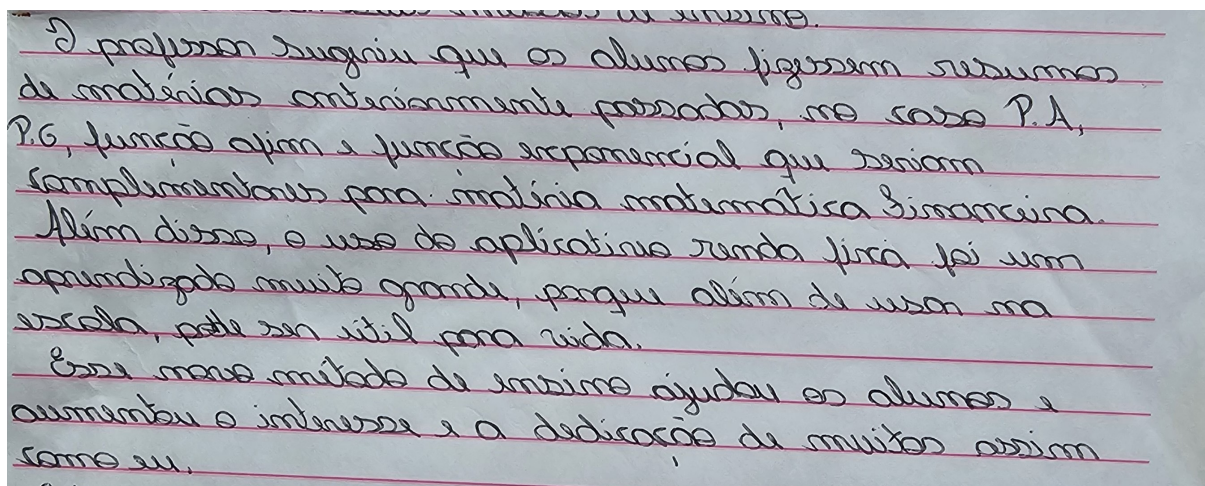 de ensino.
O professor sugeriu que os alunos fizessem resumos
de matérias anteriormente passadas, no caso P.A,
P.G, função afim e função exponencial que seriam
complementares para matéria matemática financeira.
Além disso, o uso do aplicativo renda fixa foi um
aprendizado muito grande, porque além de usar na
escola, pode ser útil para vida.
Esse novo método de ensino ajudou os alunos e
aumentou o interesse e a dedicação de muitos assim
como eu.